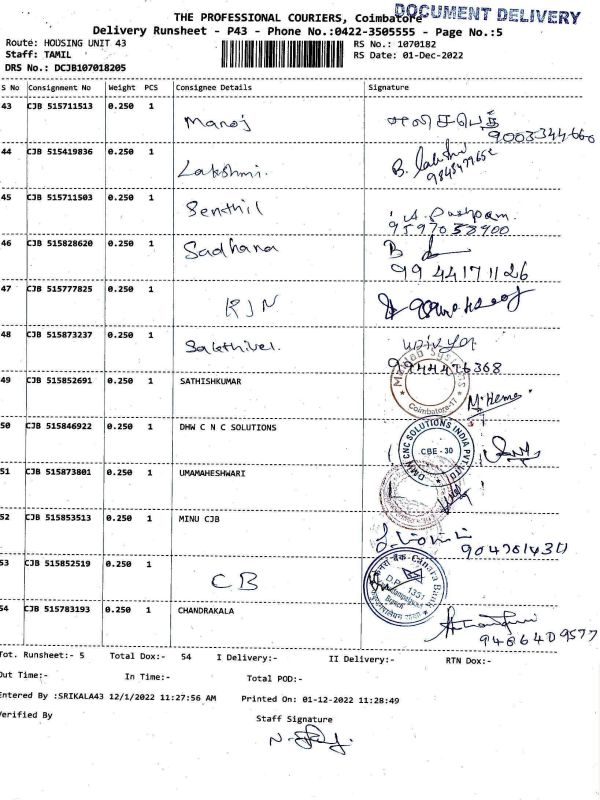 DOCUMENT DELIVERY
THE PROFESSIONAL COURIERS, Coimbatore
Delivery Runsheet - P43 - Phone No.:0422-3505555 - Page No.:5
Route: HOUSING UNIT 43
RS No.: 1070182
Staff: TAMIL
RS Date: 01-Dec-2022
DRS No.: DCJB107018205
S No Consignment No Weight PCS Consignee Details Signature
43 CJB 515711513 0.250 1 Manoj
9003344660
44 CJB 515419836 0.250 1 Lakshmi. B. Lakshmi
45 CJB 515711503 0.250 1 Senthil A. Pushpam.
9597058900
46 CJB 515828620 0.250 1 Sadhana B
9944171126
47 CJB 515777825 0.250 1 RJN
48 CJB 515873237 0.250 1 Sakthivel.
9944476368
49 CJB 515852691 0.250 1 SATHISHKUMAR M. Hema
Coimbatore-17
50 CJB 515846922 0.250 1 DHW C N C SOLUTIONS
CNC SOLUTIONS INDIA PVT LTD
CBE - 30
51 CJB 515873801 0.250 1 UMAMAHESHWARI
52 CJB 515853513 0.250 1 MINU CJB
53 CJB 515852519 0.250 1 CB
केनरा बैंक Canara Bank
D.P. 1331
54 CJB 515783193 0.250 1 CHANDRAKALA
9486409577
Tot. Runsheet:- 5 Total Dox:- 54 I Delivery:- II Delivery:- RTN Dox:-
Out Time:- In Time:- Total POD:-
Entered By :SRIKALA43 12/1/2022 11:27:56 AM Printed On: 01-12-2022 11:28:49
Verified By Staff Signature